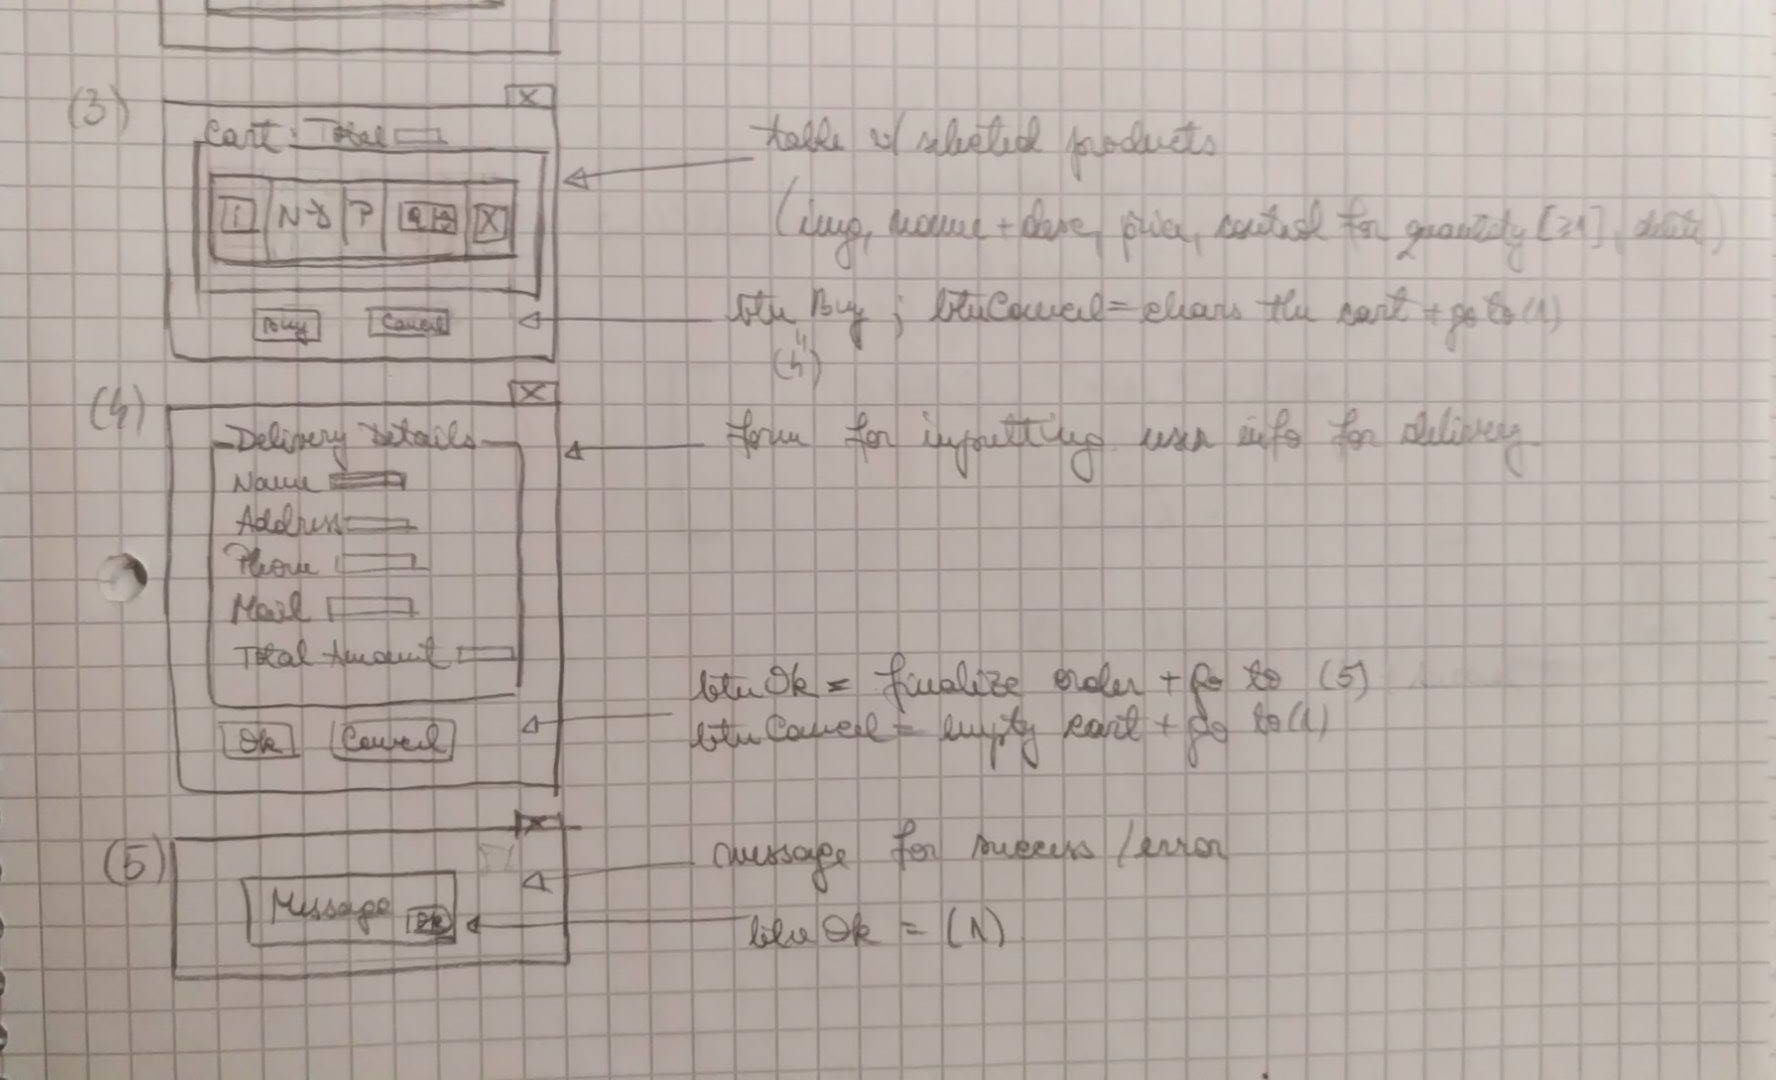 (3)
X
Cart: Total
I N+D P Q X
Buy Cancel
table w/ selected products
(img, name + desc, price, control for quantity [≥1], delete)
btn Buy ; btnCancel = clears the cart + go to (1)
"
(4)
(4)
X
Delivery Details
Name
Address
Phone
Mail
Total Amount
Ok Cancel
form for inputting user info for delivery
btn Ok = finalize order + go to (5)
btn Cancel = empty cart + go to (1)
(5)
X
Message Ok
message for success / error
btn Ok = (1)